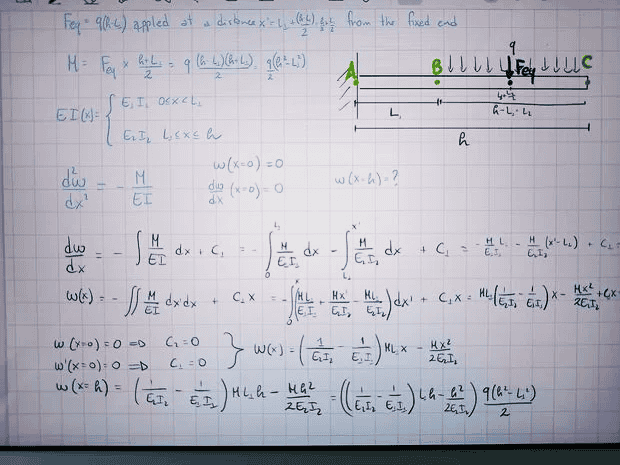 Feq = q(h-L) applied at a distance x' = L₁ + (h-L)/2 = (h+L)/2 from the fixed end
M = Feq x (h+L₁)/2 = q (h-L₁)(h+L₁)/2 = q(h²-L₁²)/2
q
A B Feq C
L₁ h-L₁=L₂
h
EI(x) = { E₁I₁ 0≤x<L₁
E₂I₂ L₁≤x≤h
w(x=0) = 0
d²w/dx² = - M/EI dw/dx (x=0) = 0 w(x=h) = ?
dw/dx = - ∫ M/EI dx + C₁ = - ∫ M/E₁I₁ dx - ∫ M/E₂I₂ dx + C₁ = - M L₁/E₁I₁ - M/E₂I₂ (x'-L₁) + C₁
w(x) = - ∬ M/EI dx'dx + C₁x = - ∫ (ML₁/E₁I₁ + Mx'/E₂I₂ - ML₁/E₂I₂) dx' + C₁x = ML₁(1/E₂I₂ - 1/E₁I₁)x - Mx²/2E₂I₂ + C₁x
w(x=0) = 0 => C₂=0
w'(x=0) = 0 => C₁=0 } w(x) = (1/E₂I₂ - 1/E₁I₁) ML₁x - Mx²/2E₂I₂
w(x=h) = (1/E₂I₂ - 1/E₁I₁) M L₁h - Mh²/2E₂I₂ = ((1/E₂I₂ - 1/E₁I₁) L₁h - h²/2E₂I₂) q(h²-L₁²)/2